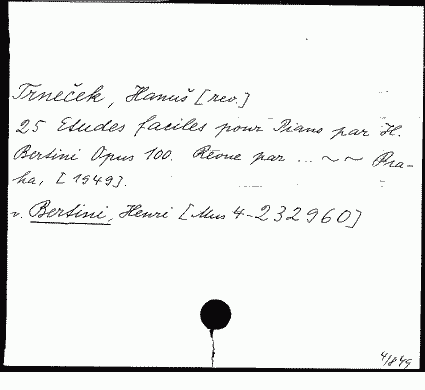 Trneček, Hanuš [rev.]
25 Etudes faciles pour Piano par H.
Bertini Opus 100. Révue par ... ~ ~ Pra-
ha, [1949].
v. Bertini, Henri [Mus 4-232960]
4/849